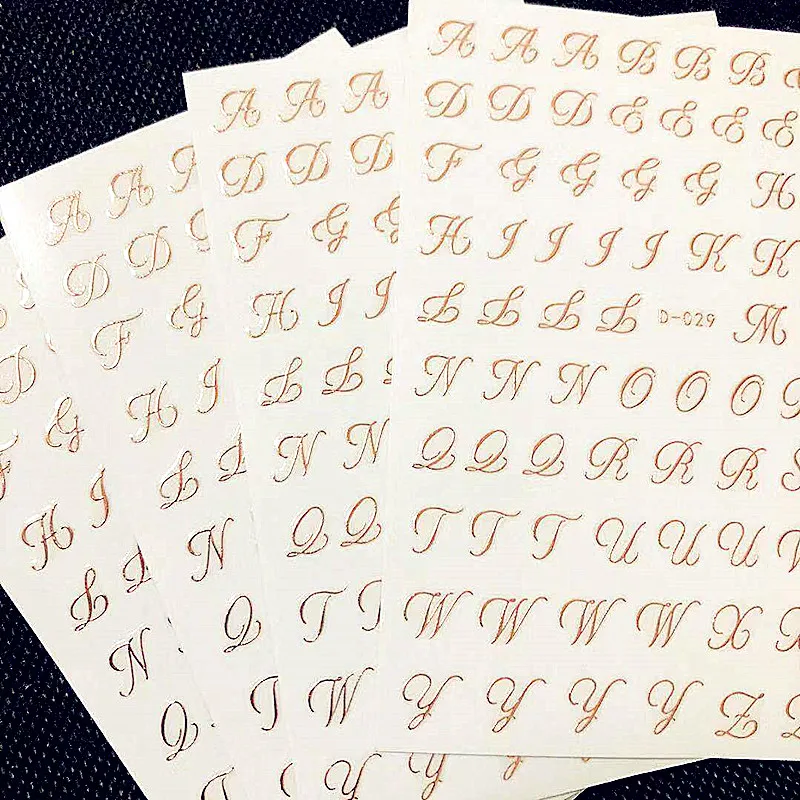 A A A B B B
D D D E E E E
F G G G G H
H I I I I K K
L L L L D-029 M
N N N O O O
Q Q Q R R R S
T T T U U U V
W W W W X
Y Y Y Y Z
A A A
D D D
F G G
H I I
L L
N N
Q Q
T T
W
Y
A A
D D
F G
H I
L L
N
Q
T
D
F G
H I
L L
N
Q
T